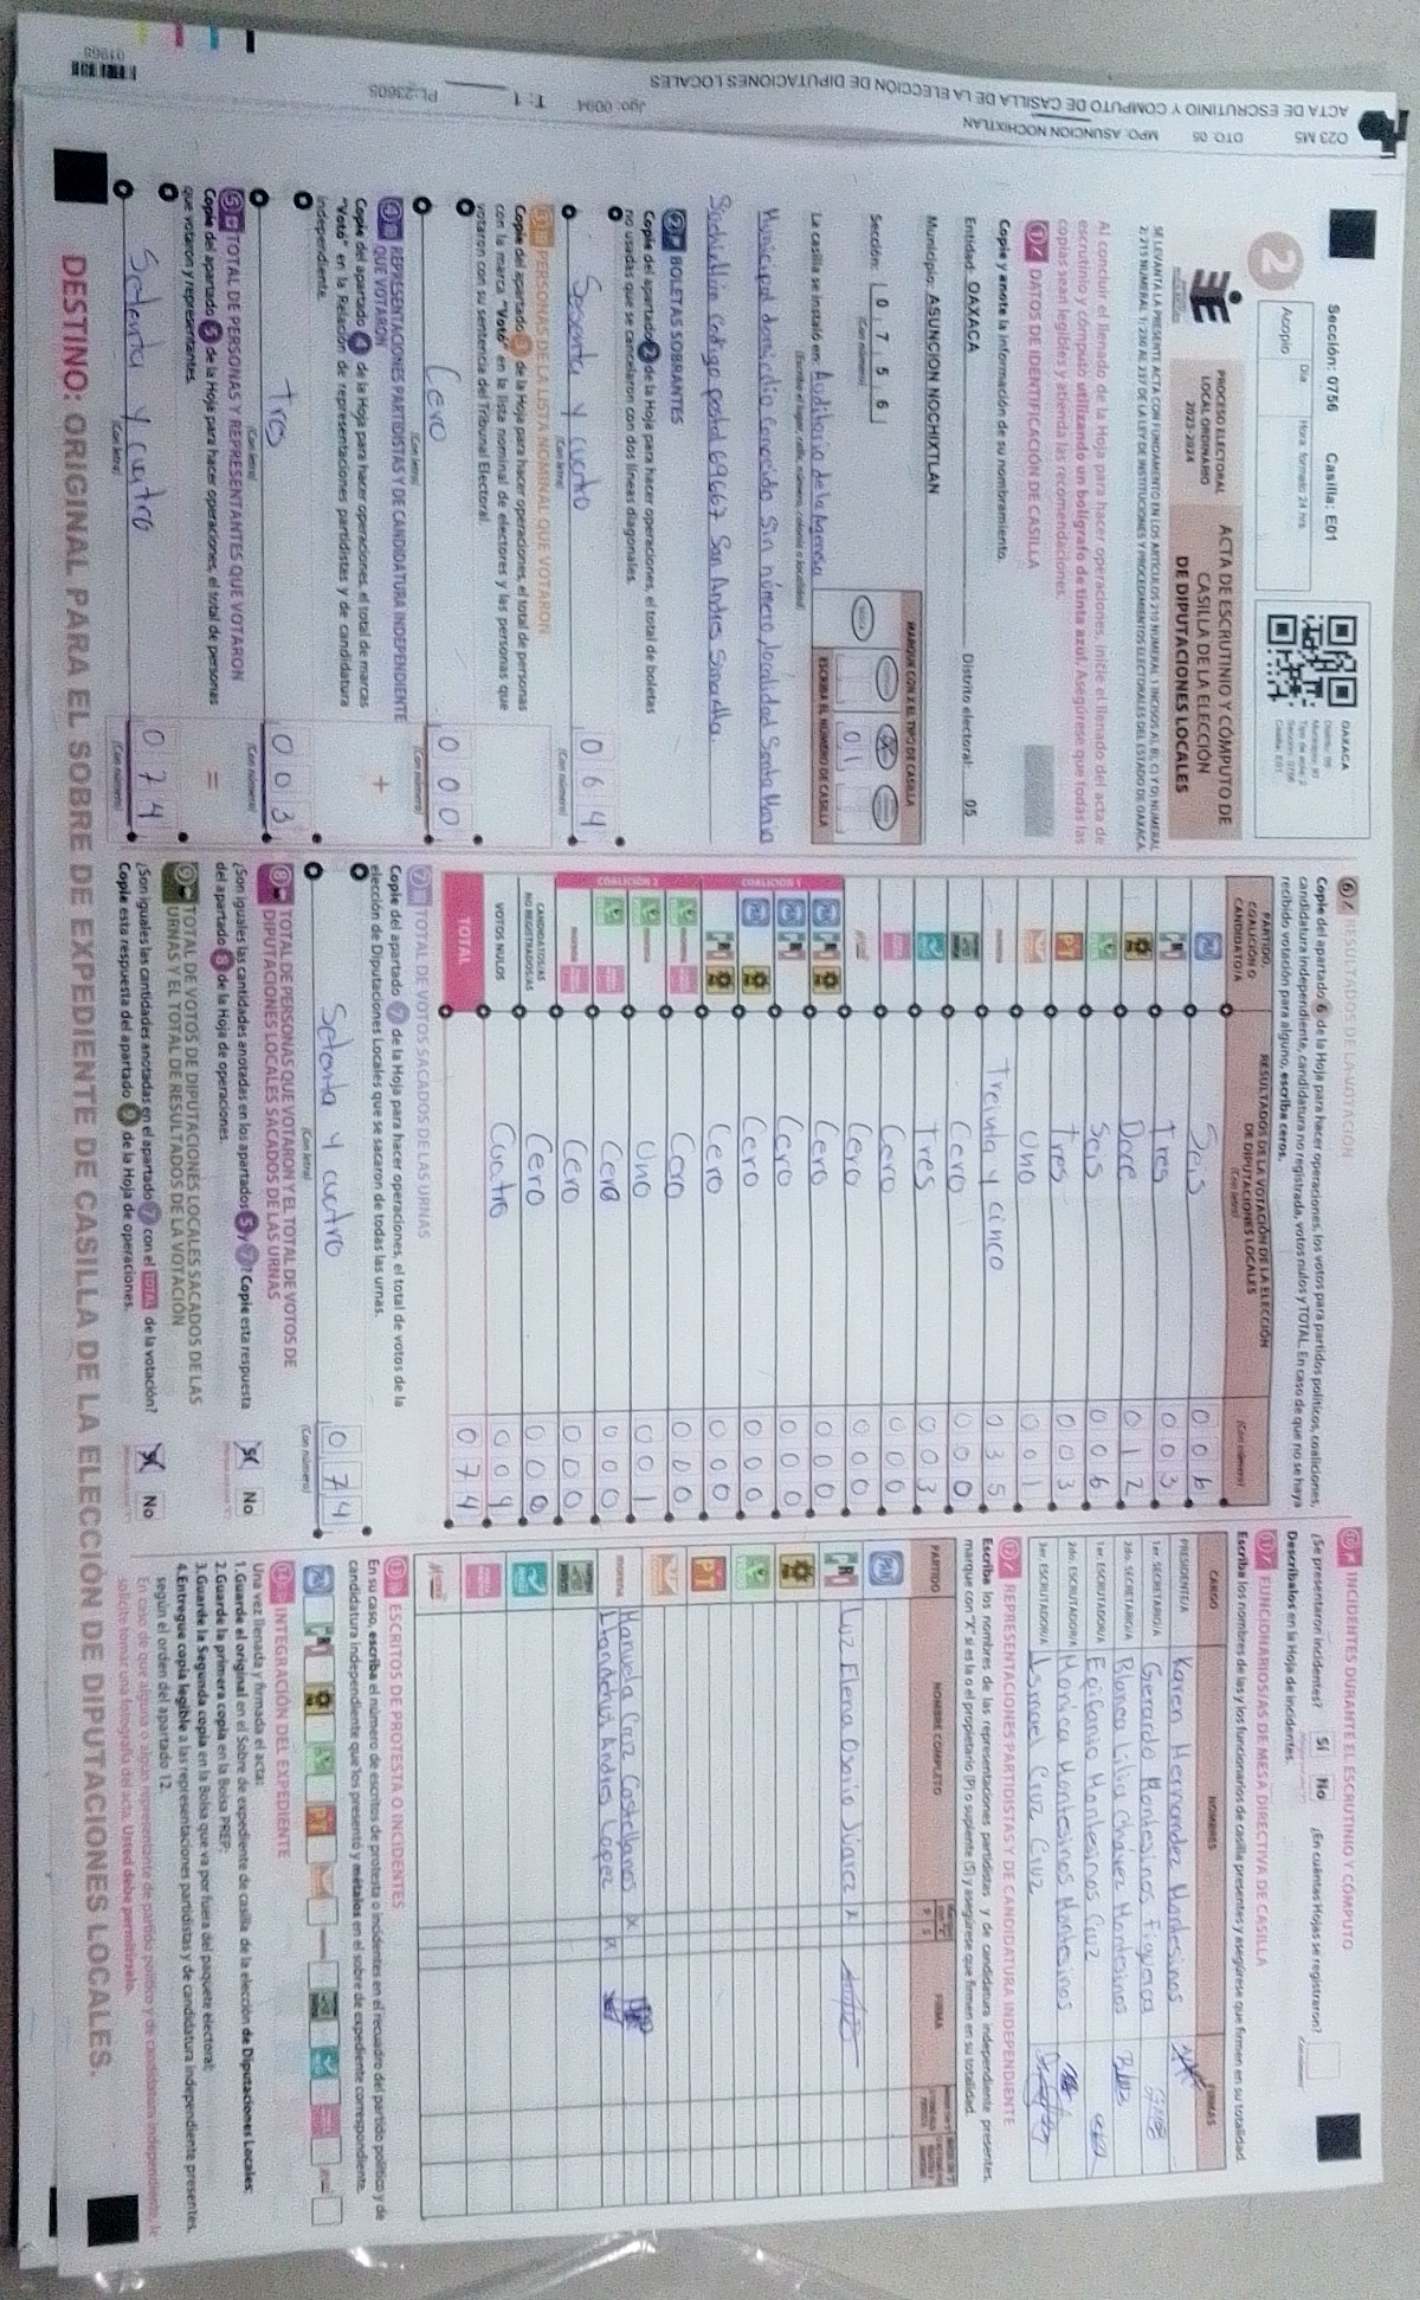 ACTA DE ESCRUTINIO Y CÓMPUTO DE CASILLA DE LA ELECCIÓN DE DIPUTACIONES LOCALES
023 MS DTO: 05 MPO: ASUNCION NOCHIXTLAN Jgo: 0094 T: 1 PL:23605
01968
Sección: 0756 Casilla: E01
2
Acopio
Día
Hora formato 24 hrs.
OAXACA
PROCESO ELECTORAL
LOCAL ORDINARIO
2023-2024
ACTA DE ESCRUTINIO Y CÓMPUTO DE
CASILLA DE LA ELECCIÓN
DE DIPUTACIONES LOCALES
Al concluir el llenado de la Hoja para hacer operaciones, inicie el llenado del acta de
escrutinio y cómputo utilizando un bolígrafo de tinta azul. Asegúrese que todas las
copias sean legibles y atienda las recomendaciones.
1 DATOS DE IDENTIFICACIÓN DE CASILLA
Copie y anote la información de su nombramiento.
Entidad: OAXACA Distrito electoral: 05
Municipio: ASUNCION NOCHIXTLAN
Sección: 0 7 5 6
(Con número)
MARQUE CON X EL TIPO DE CASILLA
ESCRIBA EL NÚMERO DE CASILLA
0 1
La casilla se instaló en: Auditorio de la Agencia
(Escriba el lugar, calle, número, colonia o localidad)
Municipal domicilio Conocido Sin número, localidad Santa Maria
Suchixtlán Codigo postal 69667 San Andres Sinaxtla.
2 BOLETAS SOBRANTES
Copie del apartado 2 de la Hoja para hacer operaciones, el total de boletas
no usadas que se cancelaron con dos líneas diagonales.
Sesenta y cuatro 0 6 4
(Con letra) (Con número)
3 PERSONAS DE LA LISTA NOMINAL QUE VOTARON
Copie del apartado 3 de la Hoja para hacer operaciones, el total de personas
con la marca "Votó" en la lista nominal de electores y las personas que
votaron con su sentencia del Tribunal Electoral.
Cero 0 0 0
(Con letra) (Con número)
4 REPRESENTACIONES PARTIDISTAS Y DE CANDIDATURA INDEPENDIENTE
QUE VOTARON
Copie del apartado 4 de la Hoja para hacer operaciones, el total de marcas
"Votó" en la Relación de representaciones partidistas y de candidatura
independiente.
+
Tres 0 0 3
(Con letra) (Con número)
5 TOTAL DE PERSONAS Y REPRESENTANTES QUE VOTARON
Copie del apartado 5 de la Hoja para hacer operaciones, el total de personas
que votaron y representantes.
=
Setenta y cuatro 0 7 4
(Con letra) (Con número)
6 RESULTADOS DE LA VOTACIÓN
Copie del apartado 6 de la Hoja para hacer operaciones, los votos para partidos políticos, coaliciones,
candidatura independiente, candidatura no registrada, votos nulos y TOTAL. En caso de que no se haya
recibido votación para alguno, escriba ceros.
PARTIDO,
COALICIÓN O
CANDIDATO/A
RESULTADOS DE LA VOTACIÓN DE LA ELECCIÓN
DE DIPUTACIONES LOCALES
(Con letra)
(Con número)
PAN Seis 0 0 6
PRI Tres 0 0 3
PRD Doce 0 1 2
Seis 0 0 6
PT Tres 0 0 3
Uno 0 0 1
morena Treinta y cinco 0 3 5
Cero 0 0 0
Tres 0 0 3
Cero 0 0 0
Cero 0 0 0
COALICIÓN 1
Cero 0 0 0
Cero 0 0 0
Cero 0 0 0
Cero 0 0 0
COALICIÓN 2
Cero 0 0 0
Uno 0 0 1
Cero 0 0 0
Cero 0 0 0
CANDIDATOS/AS
NO REGISTRADOS/AS Cero 0 0 0
VOTOS NULOS Cuatro 0 0 4
TOTAL 0 7 4
7 TOTAL DE VOTOS SACADOS DE LAS URNAS
Copie del apartado 7 de la Hoja para hacer operaciones, el total de votos de la
elección de Diputaciones Locales que se sacaron de todas las urnas.
Setenta y cuatro 0 7 4
(Con letra) (Con número)
8 TOTAL DE PERSONAS QUE VOTARON Y EL TOTAL DE VOTOS DE
DIPUTACIONES LOCALES SACADOS DE LAS URNAS
¿Son iguales las cantidades anotadas en los apartados 5 y 7? Copie esta respuesta
del apartado 8 de la Hoja de operaciones.
Sí No
9 TOTAL DE VOTOS DE DIPUTACIONES LOCALES SACADOS DE LAS
URNAS Y EL TOTAL DE RESULTADOS DE LA VOTACIÓN
¿Son iguales las cantidades anotadas en el apartado 7 con el TOTAL de la votación?
Copie esta respuesta del apartado 9 de la Hoja de operaciones.
Sí No
10 INCIDENTES DURANTE EL ESCRUTINIO Y CÓMPUTO
¿Se presentaron incidentes? Sí No ¿En cuántas Hojas se registraron?
Descríbalos en la Hoja de incidentes.
11 FUNCIONARIOS/AS DE MESA DIRECTIVA DE CASILLA
Escriba los nombres de las y los funcionarios de casilla presentes y asegúrese que firmen en su totalidad.
CARGO NOMBRES FIRMAS
PRESIDENTE/A Karen Hernandez Montesinos
1er. SECRETARIO/A Gerardo Montesinos Figueroa
2do. SECRETARIO/A Blanca Lilia Chávez Montesinos
1er. ESCRUTADOR/A Epifanio Montesinos Cruz
2do. ESCRUTADOR/A Monica Montesinos Montesinos
3er. ESCRUTADOR/A Ismael Cruz Cruz
12 REPRESENTACIONES PARTIDISTAS Y DE CANDIDATURA INDEPENDIENTE
Escriba los nombres de las representaciones partidistas y de candidatura independiente presentes,
marque con "X" si es la o el propietario (P) o suplente (S) y asegúrese que firmen en su totalidad.
PARTIDO NOMBRE COMPLETO P S FIRMA
PAN
PRI Luz Elena Osorio Júarez x
PRD
PT
morena Manuela Cruz Castellanos x
13 ESCRITOS DE PROTESTA O INCIDENTES
En su caso, escriba el número de escritos de protesta o incidentes en el recuadro del partido político y de
candidatura independiente que los presentó y métalos en el sobre de expediente correspondiente.
14 INTEGRACIÓN DEL EXPEDIENTE
Una vez llenada y firmada el acta:
1. Guarde el original en el Sobre de expediente de casilla de la elección de Diputaciones Locales;
2. Guarde la primera copia en la Bolsa PREP;
3. Guarde la Segunda copia en la Bolsa que va por fuera del paquete electoral;
4. Entregue copia legible a las representaciones partidistas y de candidatura independiente presentes,
según el orden del apartado 12.
En caso de que alguna o algun representante de partido político y de candidatura independiente, le
solicite tomar una fotografía del acta, Usted debe permitírselo.
DESTINO: ORIGINAL PARA EL SOBRE DE EXPEDIENTE DE CASILLA DE LA ELECCIÓN DE DIPUTACIONES LOCALES.